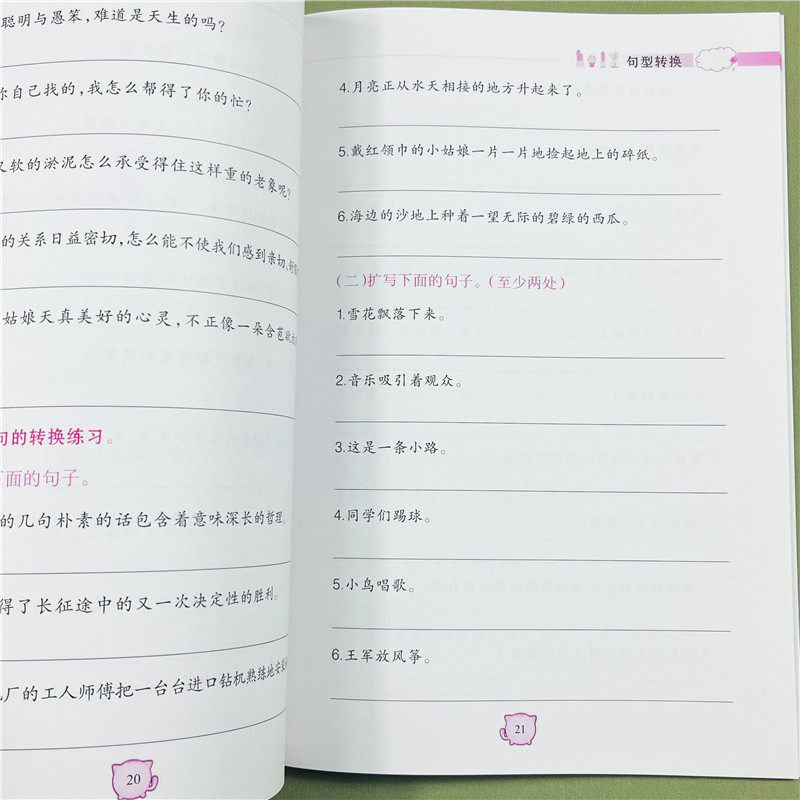 聪明与愚笨，难道是天生的吗？
你自己找的，我怎么帮得了你的忙？
又软的淤泥怎么承受得住这样重的老象呢？
的关系日益密切，怎么能不使我们感到亲切、
姑娘天真美好的心灵，不正像一朵含苞欲
句的转换练习。
下面的句子。
的几句朴素的话包含着意味深长的哲理。
得了长征途中的又一次决定性的胜利。
厂的工人师傅把一台台进口钻机熟练地安装
20
句型转换
4.月亮正从水天相接的地方升起来了。
5.戴红领巾的小姑娘一片一片地捡起地上的碎纸。
6.海边的沙地上种着一望无际的碧绿的西瓜。
（二）扩写下面的句子。（至少两处）
1.雪花飘落下来。
2.音乐吸引着观众。
3.这是一条小路。
4.同学们踢球。
5.小鸟唱歌。
6.王军放风筝。
21